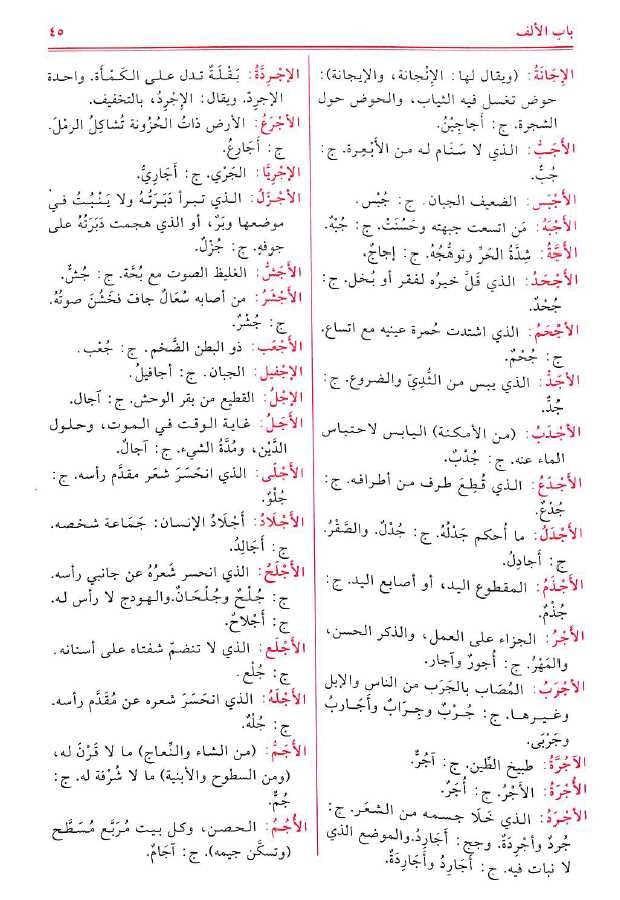 باب الألف
٤٥
الإجَانَةُ: (ويقال لها: الإنْجانة، والإيجانة):
حوض تغسل فيه الثياب، والحوض حول
الشجرة. ج: أجاجيْنُ.
الأجَبُّ: الذي لا سَنَام له من الأبْعِرة. ج:
جُبٌّ.
الأجْبَس: الضعيف الجبان. ج: جُبْس.
الأجْبَهُ: مَن اتسعت جبهته وحَسُنَتْ. ج: جُبْهٌ.
الأجَّةُ: شِدَّةُ الحَرِّ وتوهُّجُهُ. ج: إجاجٌ.
الأجْحَدُ: الذي قَلَّ خيرُه لفقر أو بُخل. ج:
جُحْدٌ.
الأجْحَمُ: الذي اشتدت حُمرة عينيه مع اتساع.
ج: جُحْمٌ.
الأجَدُّ: الذي يبس من الثُّدِيّ والضروع. ج:
جُدٌّ.
الأجْدَبُ: (من الأمكنة) اليابس لاحتباس
الماء عنه. ج: جُدْبٌ.
الأجْدَعُ: الذي قُطِعَ طرف من أطرافه. ج:
جُدْعٌ.
الأجْدَلُ: ما أحكم جَدْلُهُ. ج: جُدْلٌ. والصَّقْرُ.
ج: أجادِلُ.
الأجْذَمُ: المقطوع اليد، أو أصابع اليد. ج:
جُذْمٌ.
الأجْرُ: الجزاء على العمل، والذكر الحسن،
والمَهْرُ. ج: أُجورٌ وآجار.
الأجْرَبُ: المُصَاب بالجَرَب من الناس والإبل
وغيرها. ج: جُرْبٌ وجِرَابٌ وأَجَاربُ
وجَرْبَى.
الآجُرَّةُ: طبيخ الطِّين. ج: آجُرٌّ.
الأُجْرَةُ: الأجْرُ. ج: أُجَرٌ.
الأجْرَدُ: الذي خَلَا جسمه من الشعَر. ج:
جُردٌ وأجْرِدَةٌ. وجج: أجَاردُ.والموضع الذي
لا نبات فيه. ج: أجَاردُ وأَجَارِدَةٌ.
الإجْرِدَّةُ: بَقْلَةٌ تدل على الكَمْأة. واحدة
الإجردّ. ويقال: الإجْرِدُ، بالتخفيف.
الأجْرَعُ: الأرض ذاتُ الحُزُونة تُشاكِلُ الرملَ.
ج: أَجَارعُ.
الإجْرِيَّا: الجَرْي. ج: أَجَارِيُّ.
الأجْزَلُ: الذي تبرأ دَبَرَتُهُ ولا يَنْبُتُ فيْ
موضعها وبَرٌ، أو الذي هجمت دَبَرَتُهُ على
جوفهِ. ج: جُزْلٌ.
الأجَشُّ: الغليظ الصوت مع بُحَّة. ج: جُشٌّ.
الأجْشَرُ: من أصابه سُعَالٌ جافّ فخَشُنَ صوتُهُ.
ج: جُشْرٌ.
الأجْعَب: ذو البطن الضَّخم. ج: جُعْب.
الإجْفيل: الجبان. ج: أجافيلُ.
الإجْلُ: القطيع من بقر الوحش. ج: آجال.
الأجَلُ: غاية الوقت في الموت، وحلول
الدَّيْن، ومُدَّةُ الشيء. ج: آجالٌ.
الأجْلَى: الذي انحَسَرَ شعر مقدَّم رأسه. ج:
جُلْوٌ.
الأجْلَادُ: أجْلَادُ الإنسان: جَمَاعة شخصه.
ج: أَجَالِدُ.
الأجْلَحُ: الذي انحسر شَعرُهُ عن جانبي رأسه.
ج: جُلْحٌ وجُلْحَانٌ.والهودج لا رأس له.
ج: أَجْلاحٌ.
الأجْلَع: الذي لا تنضمّ شفتاه على أسنانه.
ج: جُلْع.
الأجْلَهُ: الذي انحَسَرَ شعره عن مُقَدَّم رأسه.
ج: جُلْهٌ.
الأجَمُّ: (من الشاء والنِّعاج) ما لا قَرْنَ له،
(ومن السطوح والأبنية) ما لا شُرْفة له. ج:
جُمٌّ.
الأُجُمُ: الحصن، وكل بيت مُرَبَّع مُسَطَّح
(وتسكَّن جيمه). ج: آجَامٌ.